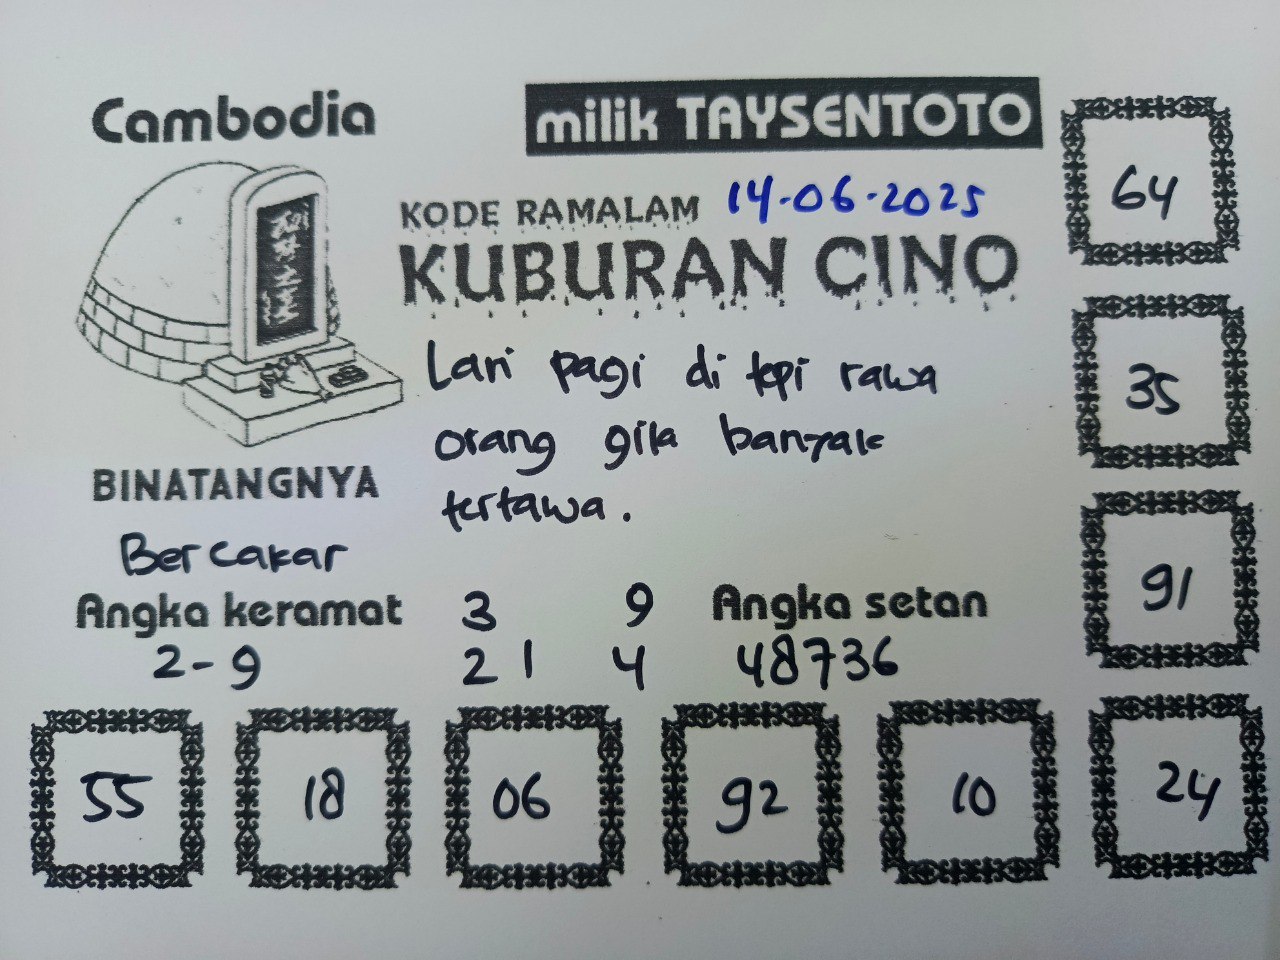 Cambodia
milik TAYSENTOTO
KODE RAMALAM 14-06-2025
KUBURAN CINO
Lari pagi di tepi rawa
orang gila banyak
tertawa.
BINATANGNYA
Bercakar
Angka keramat
2-9
3 9
2 1 4
Angka setan
48736
64
35
91
55 18 06 92 10 24